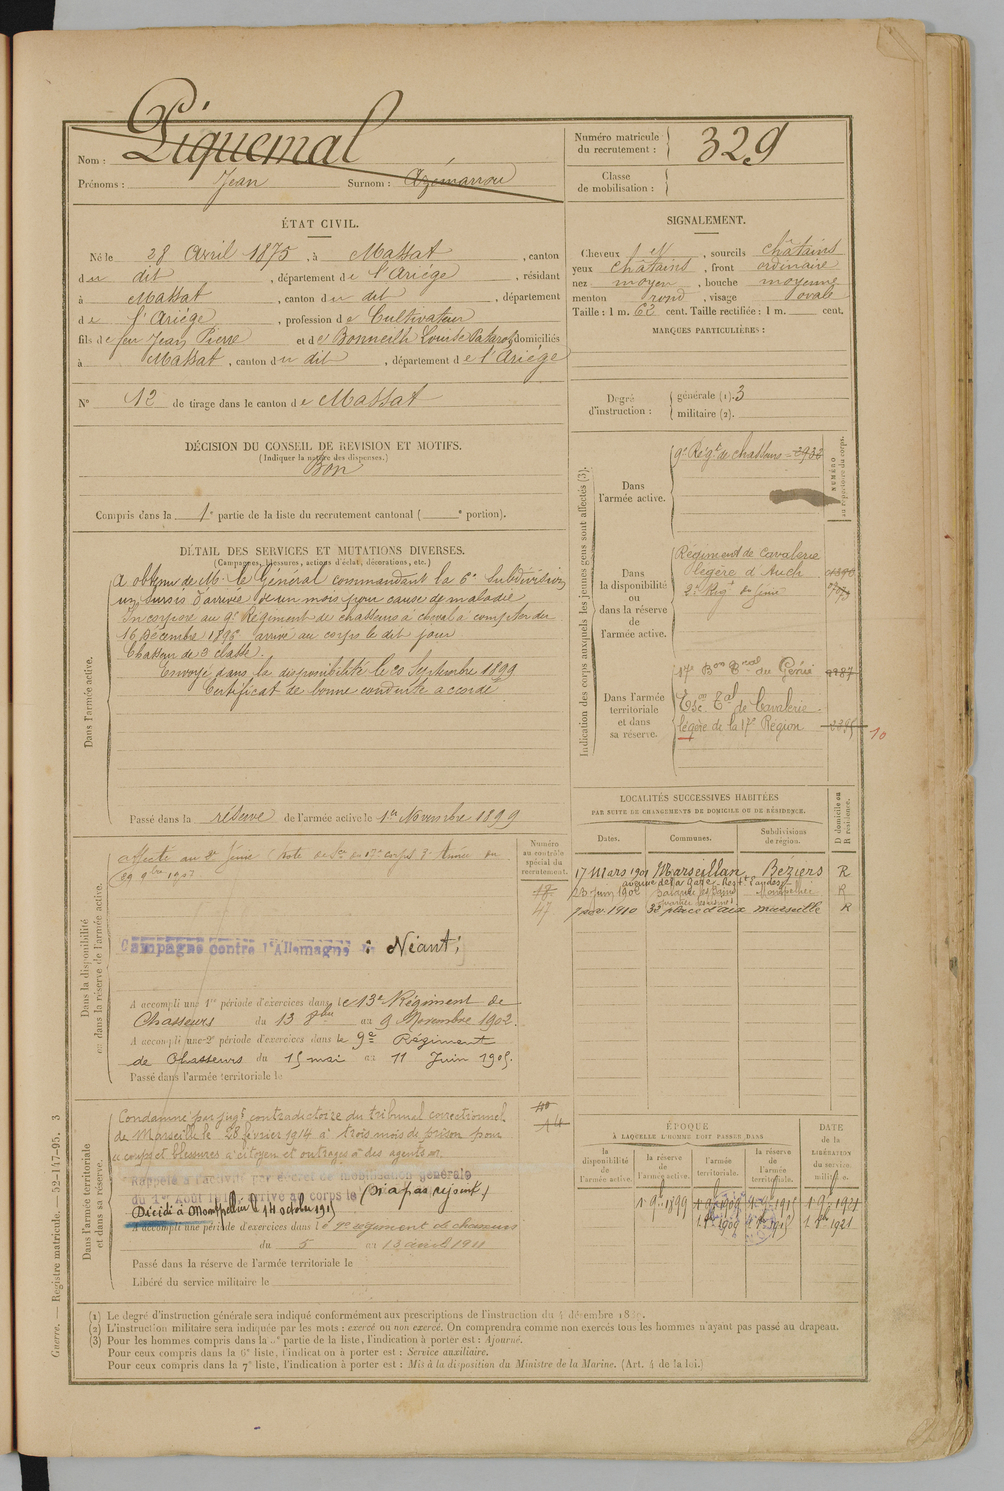 Nom : Piquemal
Prénoms : Jean Surnom : Azémarrou
Numéro matricule du recrutement : 329
Classe de mobilisation :
ÉTAT CIVIL.
Né le 28 Avril 1875, à Massat, canton
du dit, département de l'Ariége, résidant
à Massat, canton du dit, département
de l'Ariége, profession de Cultivateur
fils de feu Jean Pierre et de Bonneilh Louise domiciliés
à Massat, canton du dit, département de l'Ariége
N° 12 de tirage dans le canton de Massat
SIGNALEMENT.
Cheveux et, sourcils châtains
yeux châtains, front ordinaire
nez moyen, bouche moyenne
menton rond, visage ovale
Taille : 1 m. 62 cent. Taille rectifiée : 1 m. cent.
MARQUES PARTICULIÈRES :
Degré d'instruction : générale (1). 3
militaire (2).
DÉCISION DU CONSEIL DE REVISION ET MOTIFS.
(Indiquer la nature des dispenses.)
Bon
Compris dans la 1e partie de la liste du recrutement cantonal ( e portion).
DÉTAIL DES SERVICES ET MUTATIONS DIVERSES.
(Campagnes, blessures, actions d'éclat, décorations, etc.)
Dans l'armée active.
A obtenu de M. le Général commandant la 6e Subdivision
un sursis d'arrivée de un mois pour cause de maladie
Incorporé au 9e Régiment de chasseurs à cheval à compter du
16 Décembre 1896 arrivé au corps le dit jour
Chasseur de 2 classe.
Envoyé dans la disponibilité le 20 Septembre 1899
Certificat de bonne conduite accordé
Passé dans la réserve de l'armée active le 1er Novembre 1899
Indication des corps auxquels les jeunes gens sont affectés (3).
NUMÉRO au répertoire du corps.
Dans l'armée active.
9e Régt de chasseurs
Dans la disponibilité ou dans la réserve de l'armée active.
Régiment de Cavalerie
légère d'Auch
2e Régt du Génie
Dans l'armée territoriale et dans sa réserve.
17e Bon Tal du Génie
Esc. Tal de Cavalerie
légère de la 17e Région
10
LOCALITÉS SUCCESSIVES HABITÉES
PAR SUITE DE CHANGEMENTS DE DOMICILE OU DE RÉSIDENCE.
Dates. Communes. Subdivisions de région. D domicile ou R résidence.
17 Mars 1901 Marseillan Béziers R
23 Juin 1902 Montpellier R
7 nov. 1910 32 place d'aix Marseille R
Numéro au contrôle spécial du recrutement.
47
Dans la disponibilité ou dans la réserve de l'armée active.
Affecté au 2e Génie
Campagne contre l'Allemagne : Néant
A accompli une 1re période d'exercices dans le 13e Régiment de
Chasseurs du 13 8bre au 9 Novembre 1902.
A accompli une 2e période d'exercices dans le 9e Régiment
de Chasseurs du 15 mai au 11 Juin 1905.
Passé dans l'armée territoriale le
Dans l'armée territoriale et dans sa réserve.
Condamné par jugt contradictoire du tribunal correctionnel
de Marseille le 28 février 1914 à trois mois de prison pour
coups et blessures à citoyen et outrages à des agents
Rappelé à l'activité par décret de mobilisation générale
du 1er Août 1914 Arrivé au corps le (n'a pas rejoint)
Décédé à Montpellier le 14 octobre 1915
A accompli une période d'exercices dans le 9e régiment de chasseurs
du 5 au 13 avril 1911
Passé dans la réserve de l'armée territoriale le
Libéré du service militaire le
ÉPOQUE
À LAQUELLE L'HOMME DOIT PASSER DANS
la disponibilité de l'armée active. la réserve de l'armée active. l'armée territoriale. la réserve de l'armée territoriale. DATE de la LIBÉRATION du service militaire.
1er 9bre 1899
(1) Le degré d'instruction générale sera indiqué conformément aux prescriptions de l'instruction du 4 décembre
(2) L'instruction militaire sera indiquée par les mots : exercé ou non exercé. On comprendra comme non exercés tous les hommes n'ayant pas passé au drapeau.
(3) Pour les hommes compris dans la 5e partie de la liste, l'indication à porter est : Ajourné.
Pour ceux compris dans la 6e liste, l'indication à porter est : Service auxiliaire.
Pour ceux compris dans la 7e liste, l'indication à porter est : Mis à la disposition du Ministre de la Marine. (Art. 4 de la loi.)
Guerre. — Registre matricule. — 52-147-95. 3